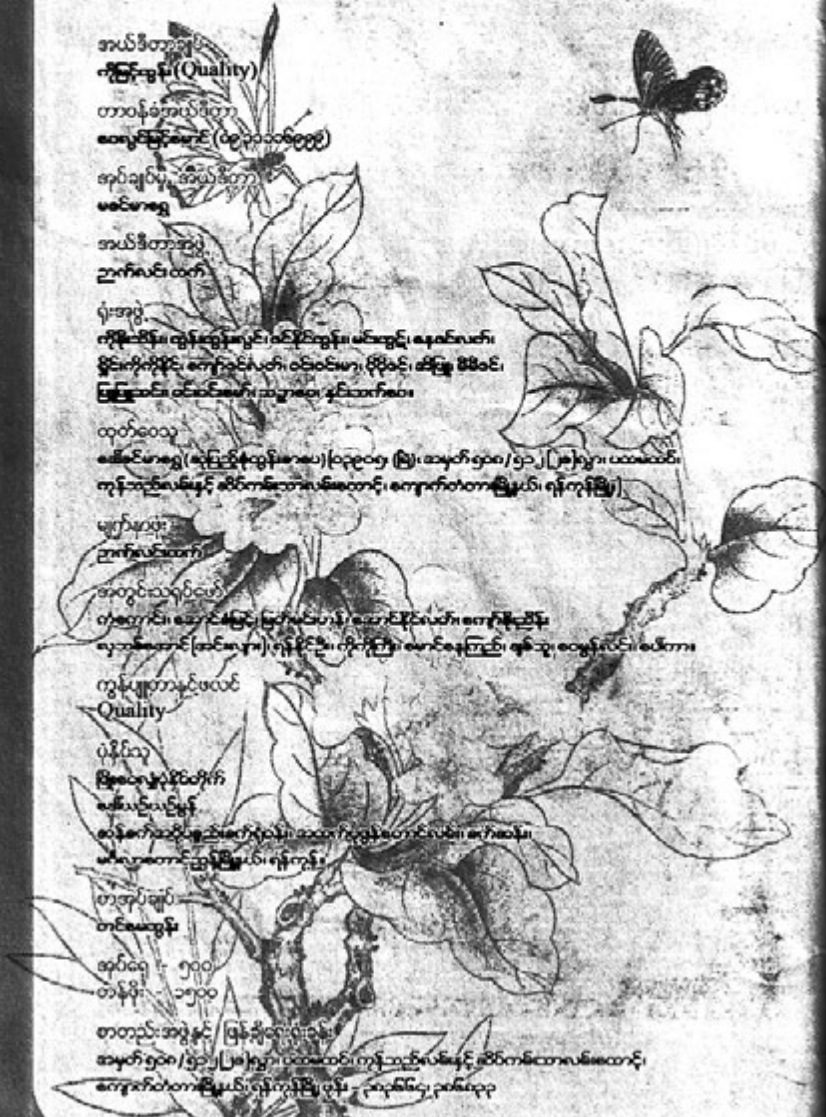 အယ်ဒီတာချုပ်
ကိုမြင့်ထွန်း (Quality)
တာဝန်ခံအယ်ဒီတာ
ဝေလွင်မြင့်မောင် (၀၉၃၁၁၁၆၉၉၉)
အုပ်ချုပ်မှု အယ်ဒီတာ
မခင်မာရွှေ
အယ်ဒီတာအဖွဲ့
ဉာက်လင်းထက်
ရုံးအဖွဲ့
ကိုစိုးသိန်း၊ ထွန်းထွန်းလွင်၊ ဇင်နိုင်ထွန်း၊ မင်းထွဋ်၊ နေဇင်လတ်၊
ရှိုင်းကိုကိုနိုင်၊ ကျော်ဇင်လတ်၊ ဝင်းဝင်းမာ၊ ပိုပိုခင်၊ အိဖြူ၊ မီမီခင်၊
ဖြူဖြူသင်း၊ ဝင်းဝင်းမော်၊ သဉ္ဇာဝေ၊ နှင်းသက်ဝေ။
ထုတ်ဝေသူ
ဒေါ်ခင်မာရွှေ (ဆုပြည့်စုံထွန်းစာပေ) [၀၃၉၀၅၊ (မြဲ)၊ အမှတ် ၅၀၈ / ၅၁၂ [၂၈]လွှာ၊ ပထမထပ်၊
ကုန်သည်လမ်းနှင့် ဆိပ်ကမ်းသာလမ်းထောင့်၊ ကျောက်တံတားမြို့နယ်၊ ရန်ကုန်မြို့]
မျက်နှာဖုံး
ဉာက်လင်းထက်
အတွင်းသရုပ်ဖော်
ကံကောင်း၊ အောင်စိုးမြင့်၊ မြတ်မင်းဟန်၊ အောင်နိုင်လတ်၊ ကျော်စိုးညိန်း
လှဘစ်အောင် [အင်းလျား]၊ ရန်နိုင်ဦး၊ ကိုကိုကြီး၊ မောင်နေကြည်၊ ချစ်သူ၊ ဝေမွန်လင်း၊ စပါကား။
ကွန်ပျူတာနှင့်ဖလင်
Quality
ပုံနှိပ်သူ
ဖြိုးဝေလျှံပုံနှိပ်တိုက်
ဒေါ်ယဉ်ယဉ်မွန်
ဆန်စက်အပိုပစ္စည်းစက်ရုံဝန်း၊ အထက်ပုဇွန်တောင်လမ်း၊ စက်ဆန်း၊
မင်္ဂလာတောင်ညွန့်မြို့နယ်၊ ရန်ကုန်။
စာအုပ်ချုပ်
တင်မေထွန်း
အုပ်ရေ - ၅၀၀
တန်ဖိုး - ၁၅၀၀
စာတည်းအဖွဲ့နှင့် ဖြန့်ချိရေးရုံးခန်း
အမှတ် ၅၀၈ / ၅၁၂[၂၈]လွှာ၊ ပထမထပ်၊ ကုန်သည်လမ်းနှင့် ဆိပ်ကမ်းသာလမ်းထောင့်၊
ကျောက်တံတားမြို့နယ်၊ ရန်ကုန်မြို့ ဖုန်း -